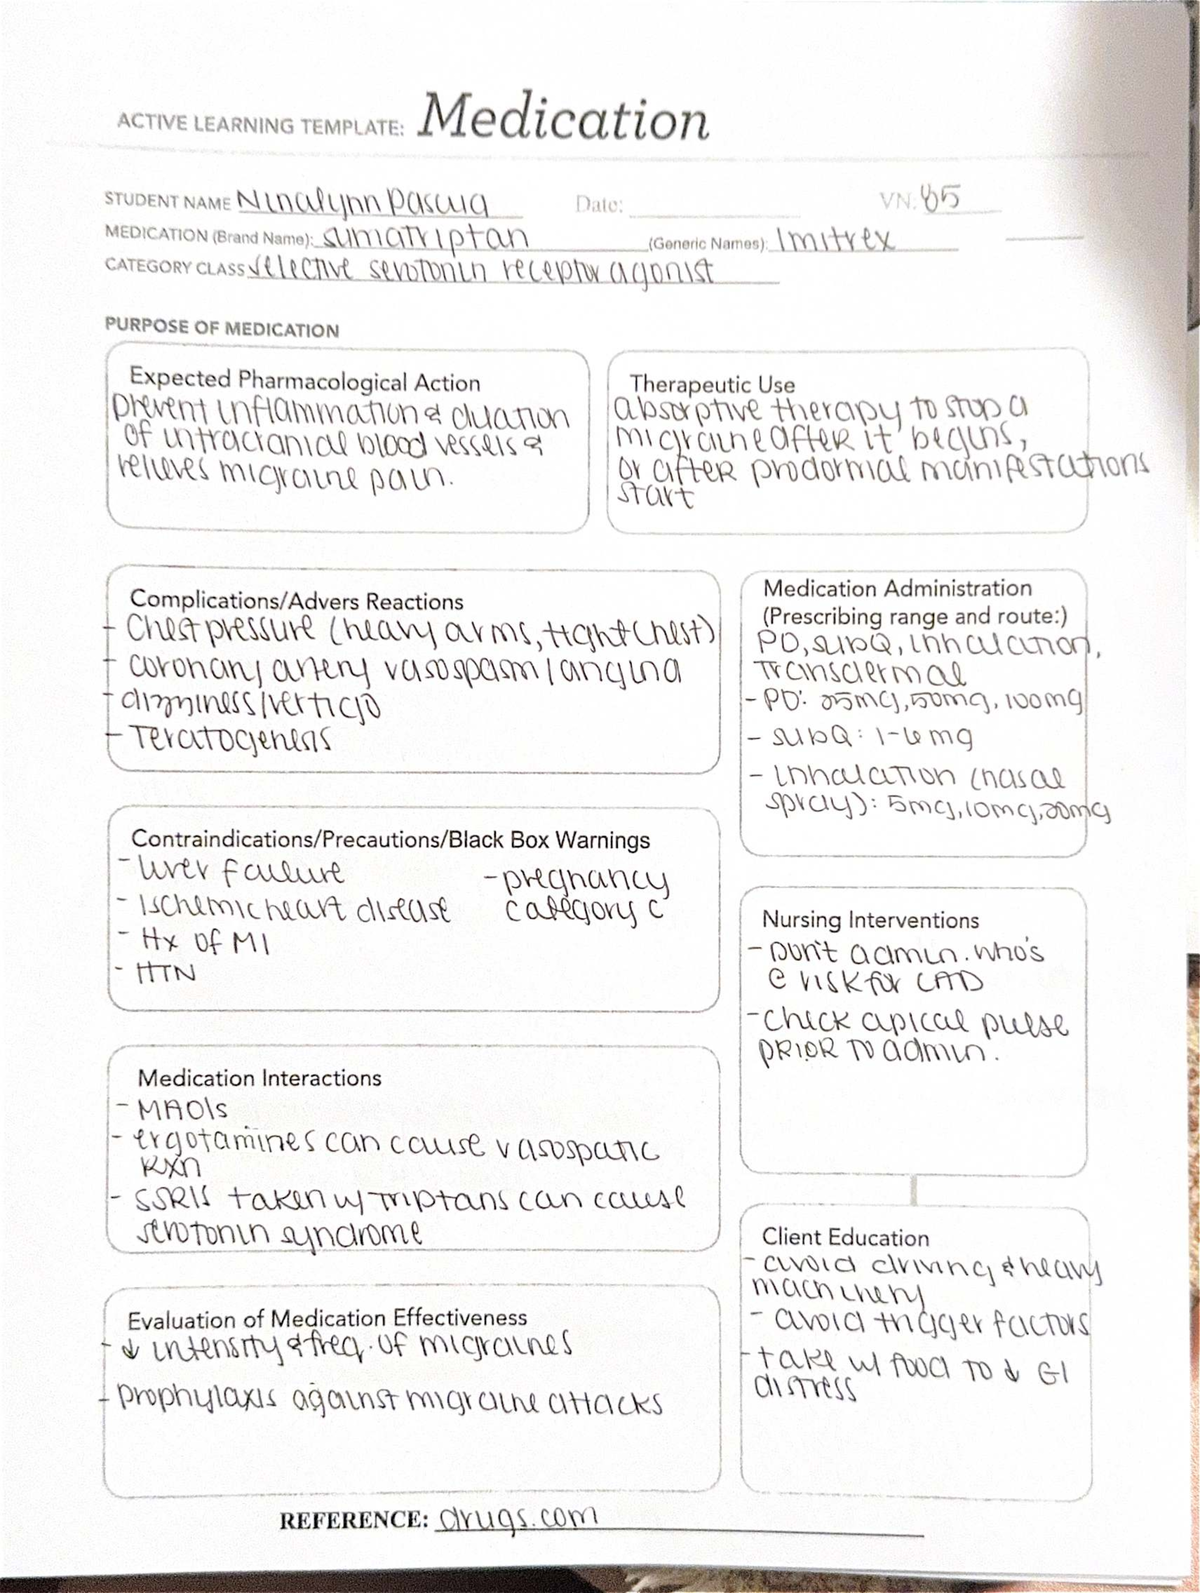 ACTIVE LEARNING TEMPLATE: Medication
STUDENT NAME Ninalynn Pascua Date: VN: 85
MEDICATION (Brand Name): sumatriptan (Generic Names): Imitrex
CATEGORY CLASS selective serotonin receptor agonist
PURPOSE OF MEDICATION
Expected Pharmacological Action
prevent inflammation & diation
of intracranial blood vessels &
relieves migraine pain.
Therapeutic Use
absorptive therapy to stop a
migraine after it begins,
or after prodormal manifestations
start
Complications/Advers Reactions
- Chest pressure (heavy arms, tight chest)
- coronary artery vasospasm/angina
- dizziness/vertigo
- Teratogenesis
Medication Administration
(Prescribing range and route:)
PO, subQ, inhalation,
Transdermal
- PO: 25mg, 50mg, 100mg
- subQ: 1-6 mg
- inhalation (nasal
spray): 5mg, 10mg, 20mg
Contraindications/Precautions/Black Box Warnings
- liver failure
- Ischemic heart disease
- Hx of MI
- HTN
- pregnancy
category C
Nursing Interventions
- Don't admin. who's
@ risk for CAD
- check apical pulse
PRIOR TO admin.
Medication Interactions
- MAOIs
- ergotamines can cause vasospatic
RXN
- SSRIs taken w/ triptans can cause
serotonin syndrome
Client Education
- avoid driving & heavy
machinery
- avoid trigger factors
- take w/ food to ↓ GI
distress
Evaluation of Medication Effectiveness
- ↓ intensity & freq. of migraines
- prophylaxis against migraine attacks
REFERENCE: drugs.com